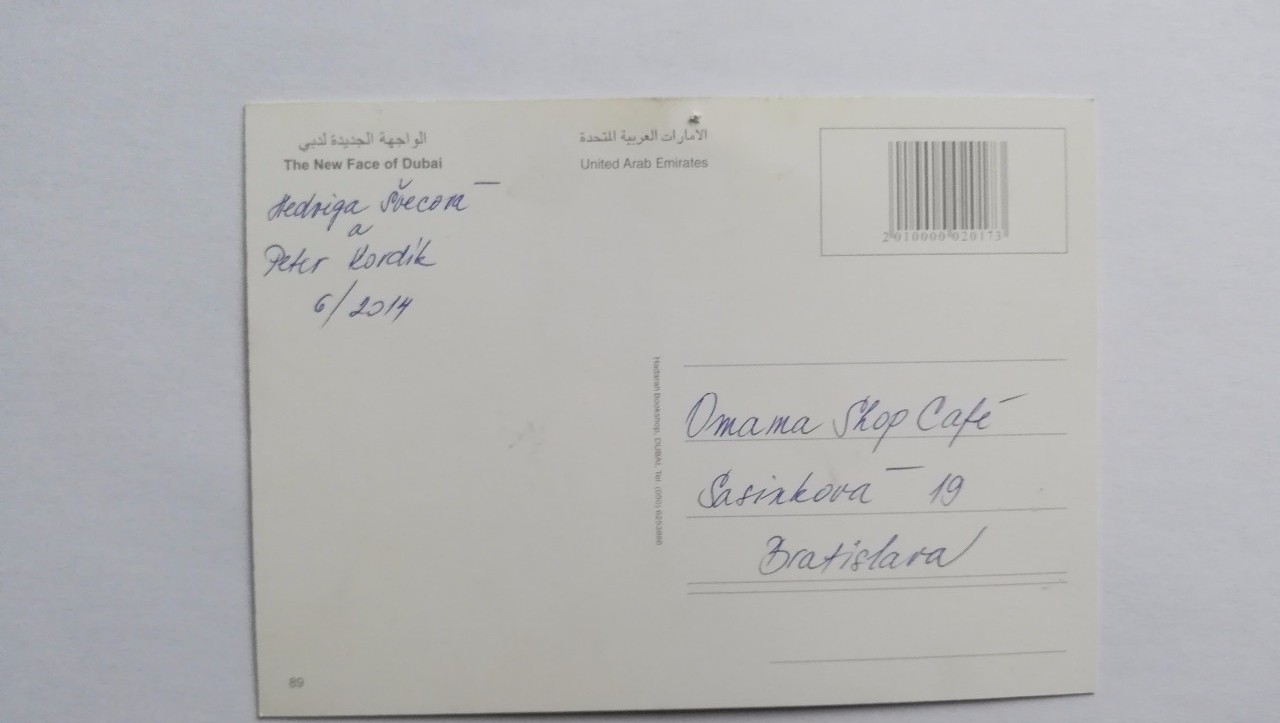 الواجهة الجديدة لدبي
The New Face of Dubai
الامارات العربية المتحدة
United Arab Emirates
2 010000 020173
Hedviga Švecová
a
Peter Kordík
6/2014
Omama Shop Café
Sasinkova 19
Bratislava
Bookshop, DUBAI, Tel:
89